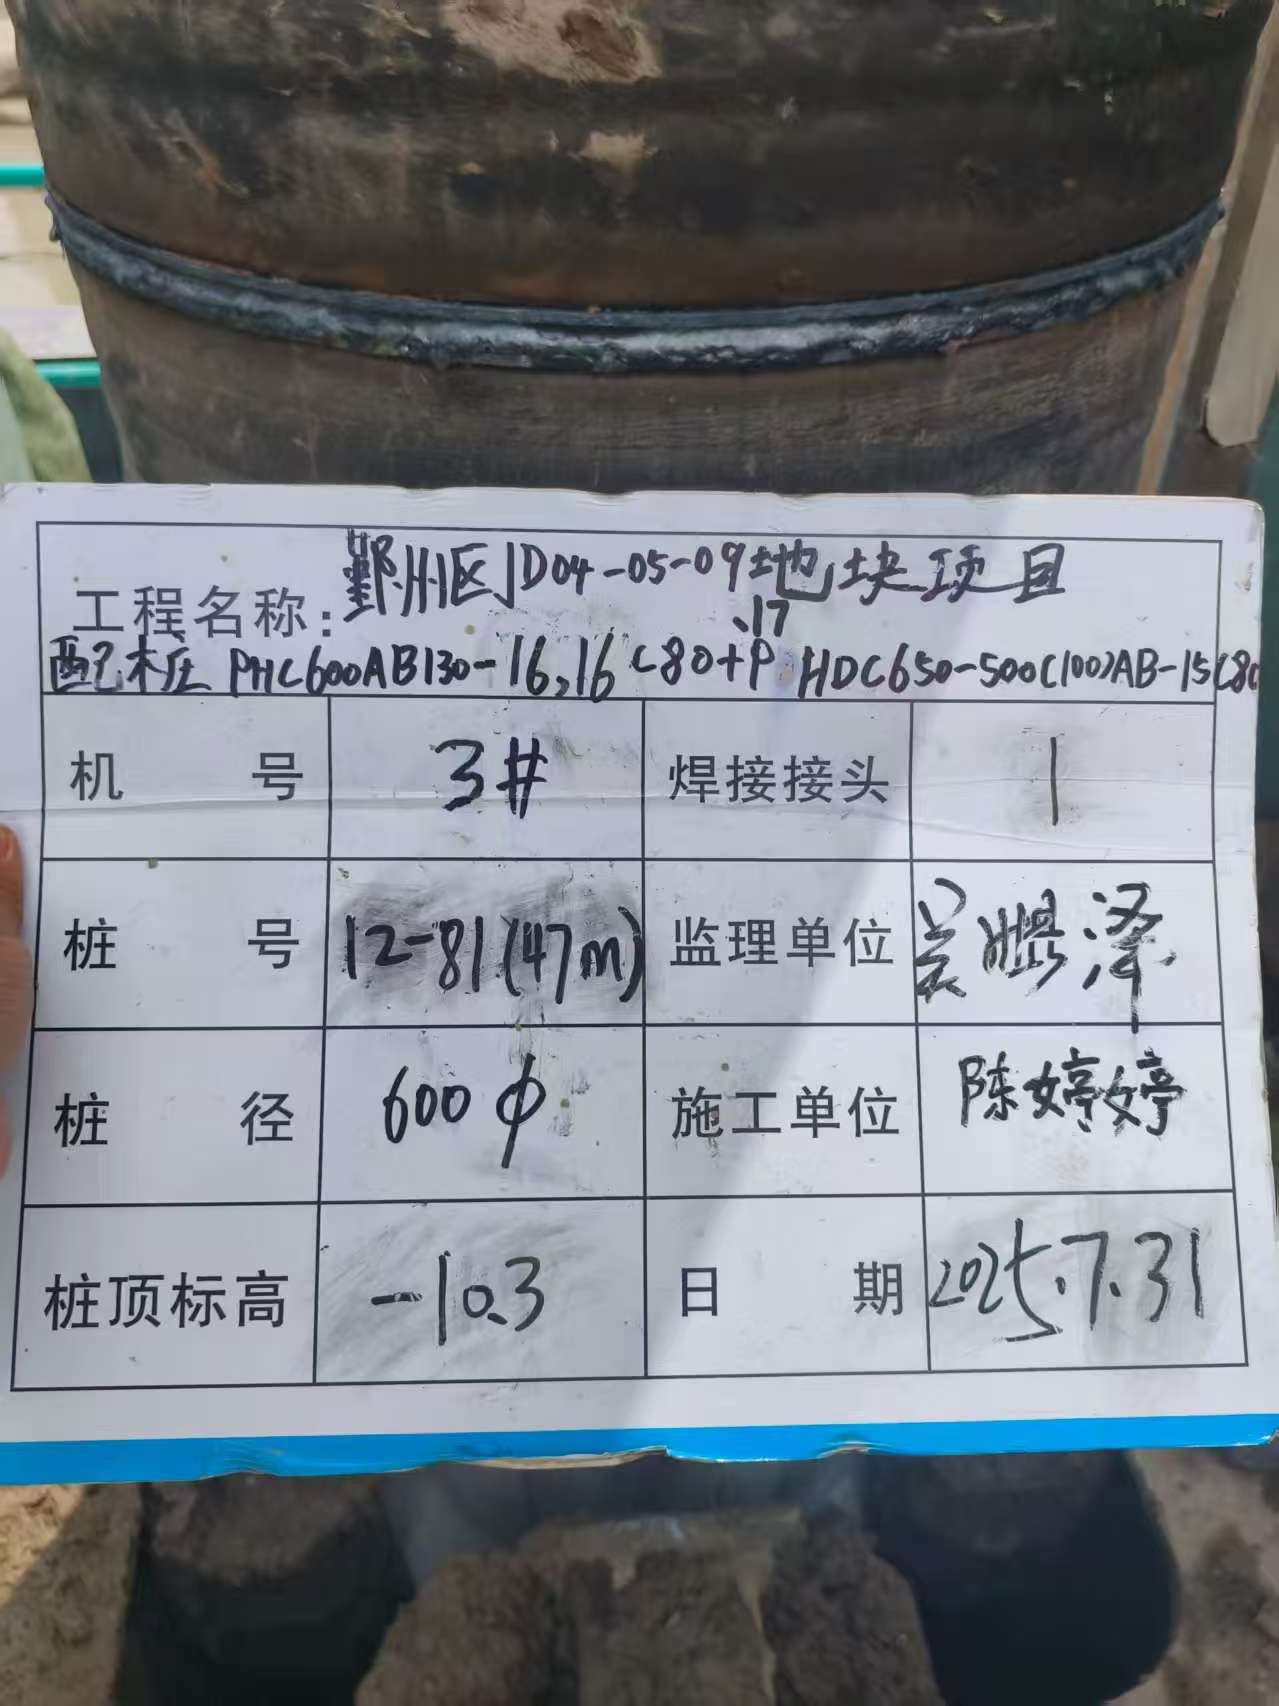 工程名称:鄞州区JD04-05-09地块项目
、17
配桩 PHC600AB130-16,16 C80+P HDC650-500(100)AB-15C80
机 号 3# 焊接接头 1
桩 号 12-81(47m) 监理单位 吴焜泽
桩 径 600 φ 施工单位 陈婷婷
桩顶标高 -10.3 日 期 2025.7.31